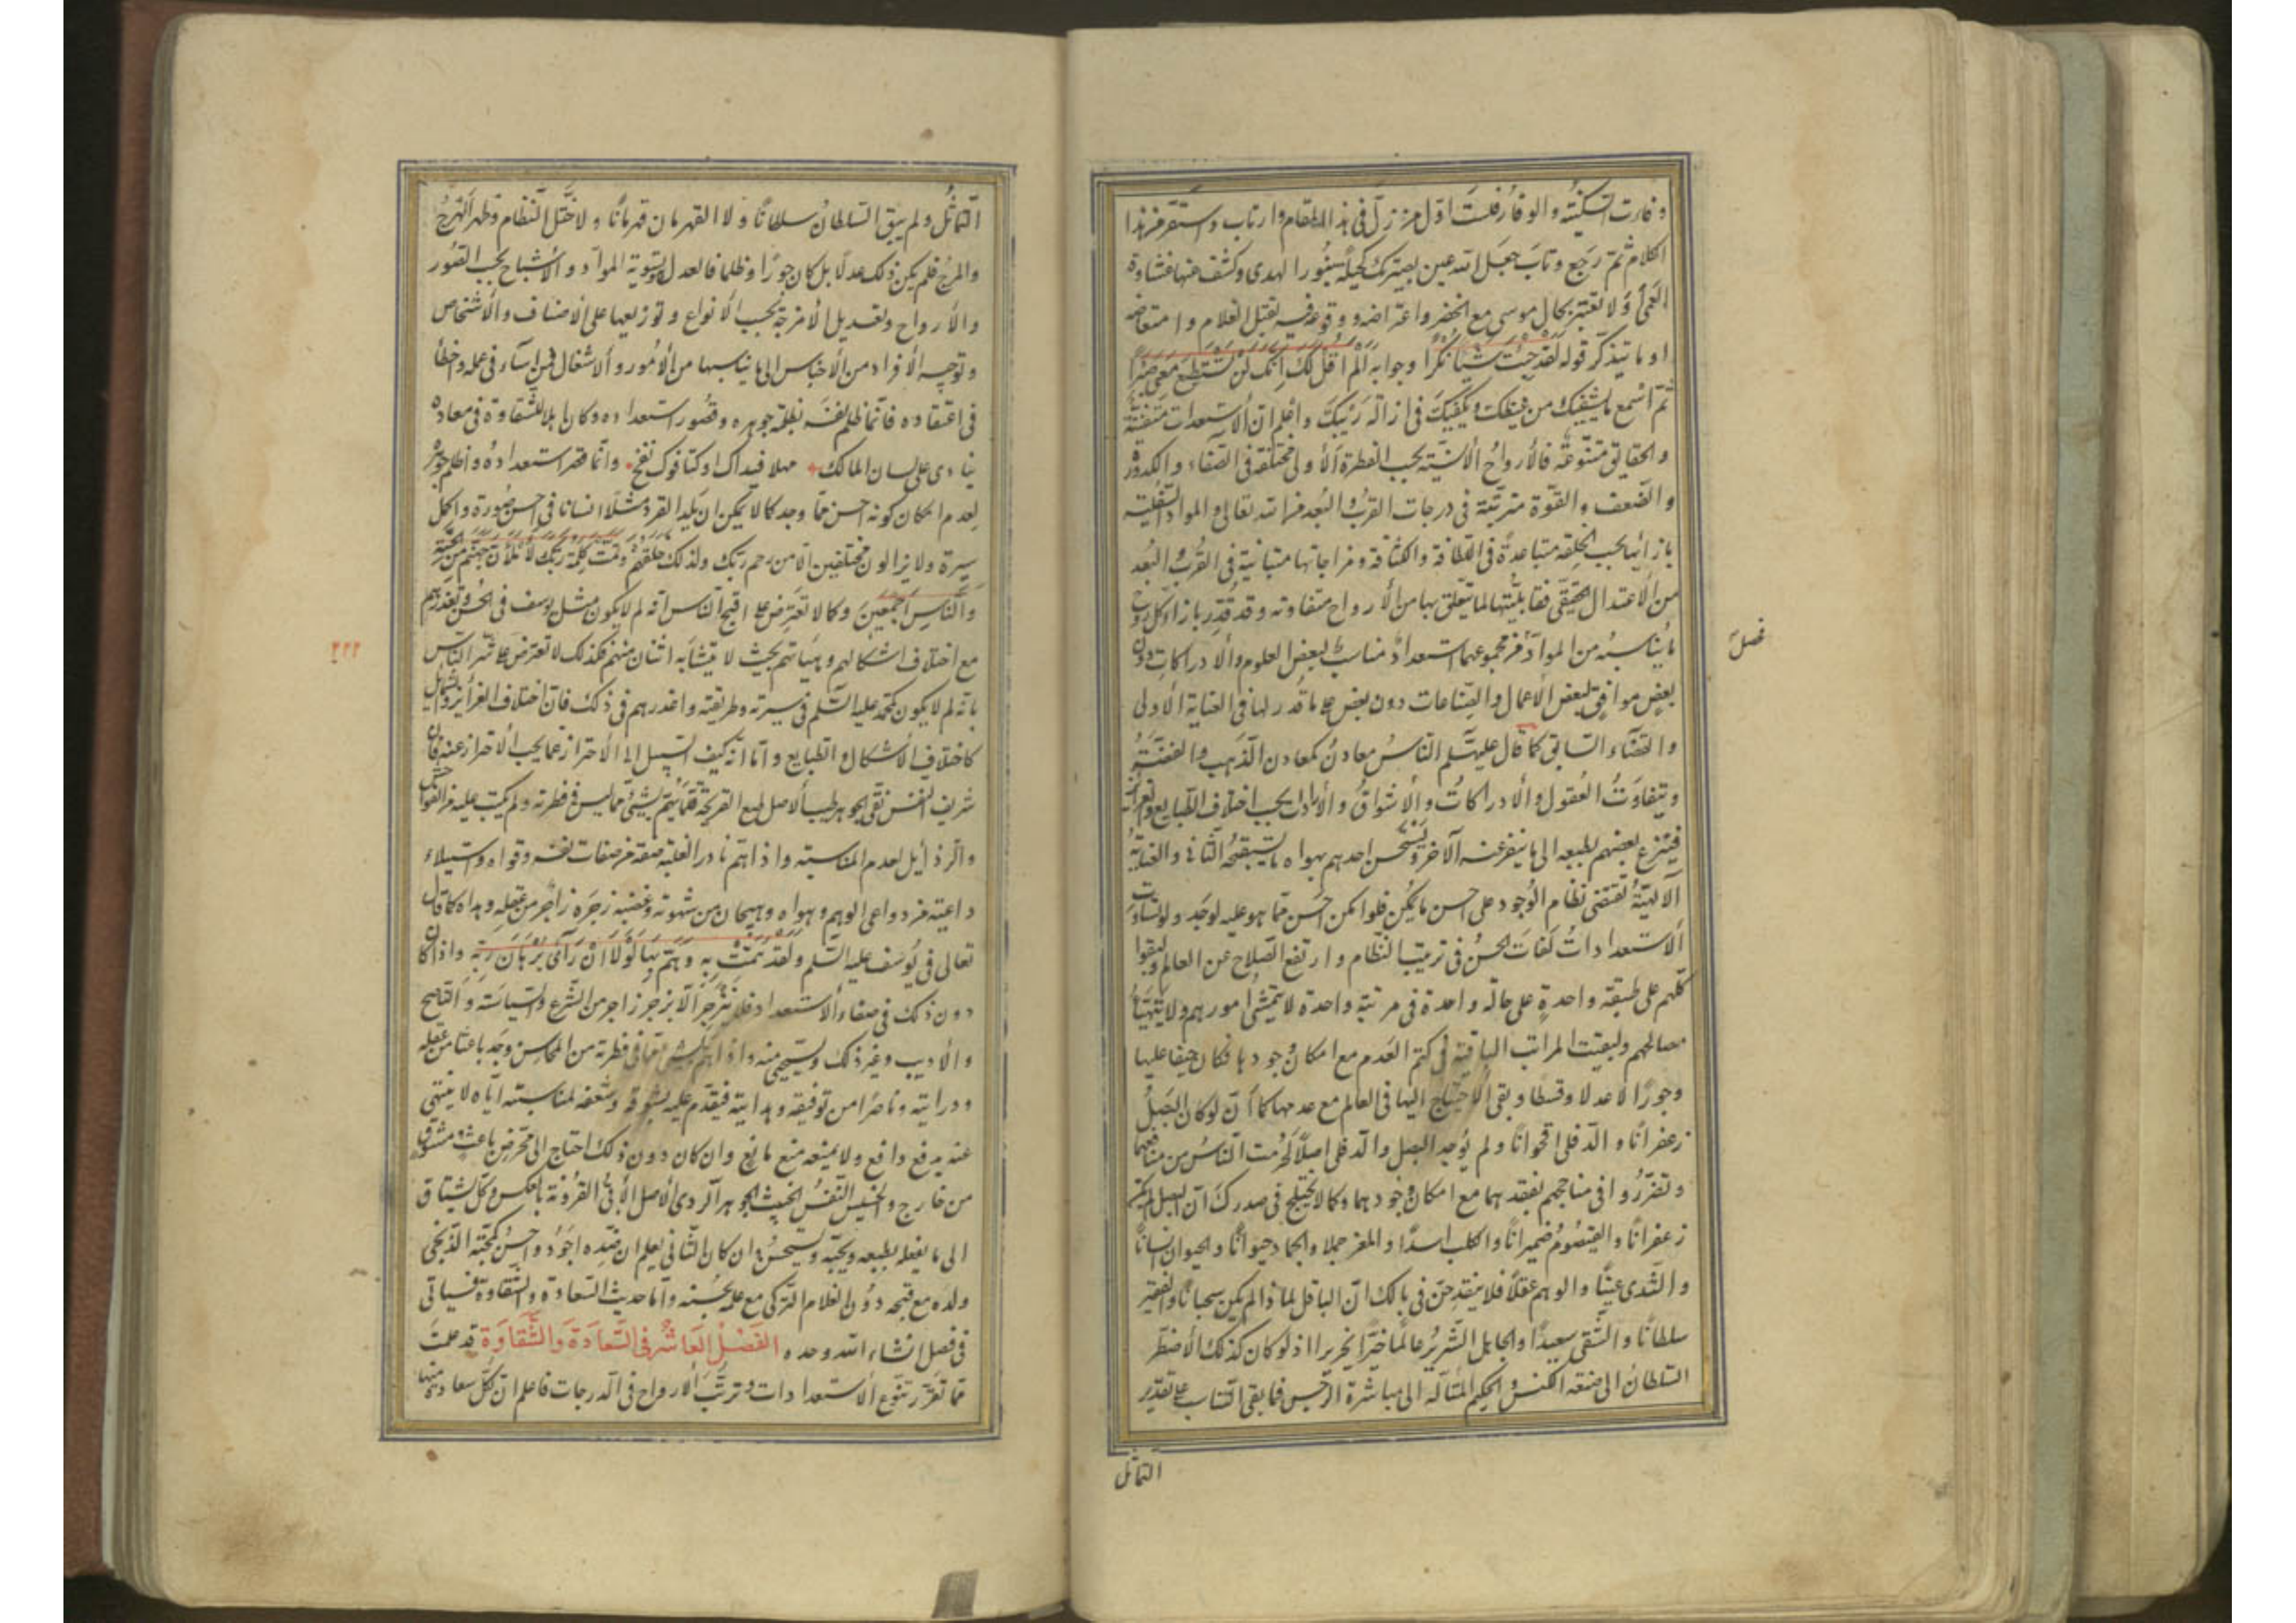 وفارت السكينة والوقار فلست اول من زل في هذا المقام وارتاب واستقر من هذا
الكلام ثم رجع وتاب جعل الله عين بصيرتك كحيلة بنور الهدى وكشف عنها غشاوة
العمى ولا تعتبر بحال موسى مع الخضر واعتراضه ووقوعه فيه بقتل الغلام وامتعاضه
او ما تتذكر قوله لقد جئت شيئا نكرا وجوابه الم اقل لك انك لن تستطيع معي صبرا
ثم اسمع ما يشفيك من غيظك ويكفيك في ازالة ريبك واعلم ان الاستعدادات متفننة
والحقائق متنوعة فالأرواح الأنسية بحسب الفطرة الأولى مختلفة في الصفاء والكدورة
والضعف والقوة مترتبة في درجات القرب والبعد من الله تعالى والمواد السفلية
بازائها بحسب الخلقة متباعدة في اللطافة والكثافة ومزاجاتها متباينة في القرب والبعد
من الاعتدال الحقيقي فقابليتها لما يتعلق بها من الأرواح متفاوتة وقد قدر بازاء كل روح
ما يناسبه من المواد فمن مجموعهما استعداد مناسب لبعض العلوم والادراكات دون
فصل
بعض موافق لبعض الاعمال والصناعات دون بعض على ما قدر لها في العناية الاولى
والقضاء السابق كما قال عليه السلم الناس معادن كمعادن الذهب والفضة
ويتفاوت العقول والادراكات والاشواق والارادات بحسب اختلاف الطبايع والغرائز
فينزع بعضهم بطبعه الى ما ينفر عنه الآخر ويستحسن احدهم بهواه ما يستقبحه الثاني والعناية
الالهية تقتضي نظام الوجود على احسن ما يمكن فلو امكن احسن مما هو عليه لوجد ولو تساوت
الاستعدادات لفات الحسن في ترتيب النظام وارتفع الصلاح عن العالم ولبقوا
كلهم على طبقة واحدة على حالة واحدة في مرتبة واحدة لا يتمشى امورهم ولا يتهيأ
مصالحهم ولبقيت المراتب الباقية في كتم العدم مع امكان وجودها فكان حيفا عليها
وجورا لا عدلا وقسطا وبقى الاحتياج اليها في العالم مع عدمها كما ان لو كان البصل
زعفرانا والدفلى اقحوانا ولم يوجد البصل والدفلى اصلا لحرمت الناس من منافعهما
وتضرروا في مناجحهم بفقدهما مع امكان وجودهما وكما لا يختلج في صدرك ان البصل لم لم يكن
زعفرانا والقيصوم ضميرانا والكلب اسدا والمعز جملا والجماد حيوانا والحيوان انسانا
والوهم عقلا فلا ينقدحن في بالك ان الباقل لماذا لم يكن سحبانا والفقير
سلطانا والشقي سعيدا والجاهل الشرير عالما خيرا نحريرا اذ لو كان كذلك لاضطر
السلطان الى صنعة الكنس والحكيم المتأله الى مباشرة الرجس فما بقى التناسب على تقدير
التماثل
التماثل ولم يبق السلطان سلطانا ولا القهرمان قهرمانا ولاختل النظام وظهر الهرج
والمرج فلم يكن ذلك عدلا بل كان جورا وظلما فالعدل تسوية المواد والاشباح بحسب الصور
والأرواح وتعديل الامزجة بحسب الانواع وتوزيعها على الاصناف والأشخاص
وتوجيه الأفراد من الأجناس الى ما يناسبها من الأمور والاشغال فمن اساء في عمله واخطأ
في اعتقاده فانما ظلم نفسه بظلمة جوهره وقصور استعداده وكان اهلا للشقاوة في معاده
ينادى على لسان المالك مهلا فيداك اوكتا وفوك نفخ وانما قصر استعداده واظلم جوهره
لعدم امكان كونه احسن مما وجد كما لا يمكن ان يلد القرد مثلا انسانا في احسن صورة واكمل
سيرة ولا يزالون مختلفين الا من رحم ربك ولذلك خلقهم وتمت كلمة ربك لأملأن جهنم من الجنة
والناس اجمعين وكما لا تعترض على اقبح الناس انه لم لا يكون مثل يوسف في الحسن وتعذرهم
مع اختلاف اشكالهم وهيآتهم بحيث لا يتشابه اثنان منهم فكذلك لا تعترض على شر الناس
٢٢٢
بانه لم لا يكون كمحمد عليه السلم في سيرته وطريقته واعذرهم في ذلك فان اختلاف الغرائز والشمائل
كاختلاف الاشكال والطبايع واما انه كيف السبيل الى الاحتراز عما يجب الاحتراز عنه فان
شريف النفس نقي الجوهر طيب الاصل طيع القريحة قلما يهم بشئ مما ليس في فطرته ولم يكتب عليه من الفواحش
والرذائل لعدم المناسبة واذا هم نادرا لغلبة صفة من صفات نفسه وقواه واستيلاء
داعية من دواعي الوهم وهواه وهيجان من شهوته وغضبه زجره زاجر من عقله وهداه كما قال
تعالى في يوسف عليه السلم ولقد همت به وهم بها لولا ان رآى برهان ربه واذا كان
دون ذلك في صفاء الاستعداد فلا ينزجر الا بزجر زاجر من الشرع والسياسة والناصح
والاديب وغير ذلك ويستحيي منه واذا هم بشئ مما في فطرته من المحاسن وجد باعثا من عقله
ودرايته وناصرا من توفيقه وهدايته فيقدم عليه بشوقه وشعفه لمناسبته اياه لا ينتهى
عنه بدفع دافع ولا يمنعه منع مانع وان كان دون ذلك احتاج الى محرض باعث ومشوق
من خارج والخسيس النفس الخبيث الجوهر الردى الاصل الأبى القرونة بالعكس وكل يشتاق
الى ما يفعله بطبعه ويحبه ويستحسن وان كان الثاني يعلم ان ضده اجود واحسن كمحبة الزنجى
ولده مع قبحه دون الغلام التركى مع علمه بحسنه واما حديث السعادة والشقاوة فسيأتى
في فصل انشاء الله وحده الفصل العاشر في السعادة والشقاوة قد علمت
مما تقرر تنوع الاستعدادات وترتب الارواح في الدرجات فاعلم ان لكل سعادة منها